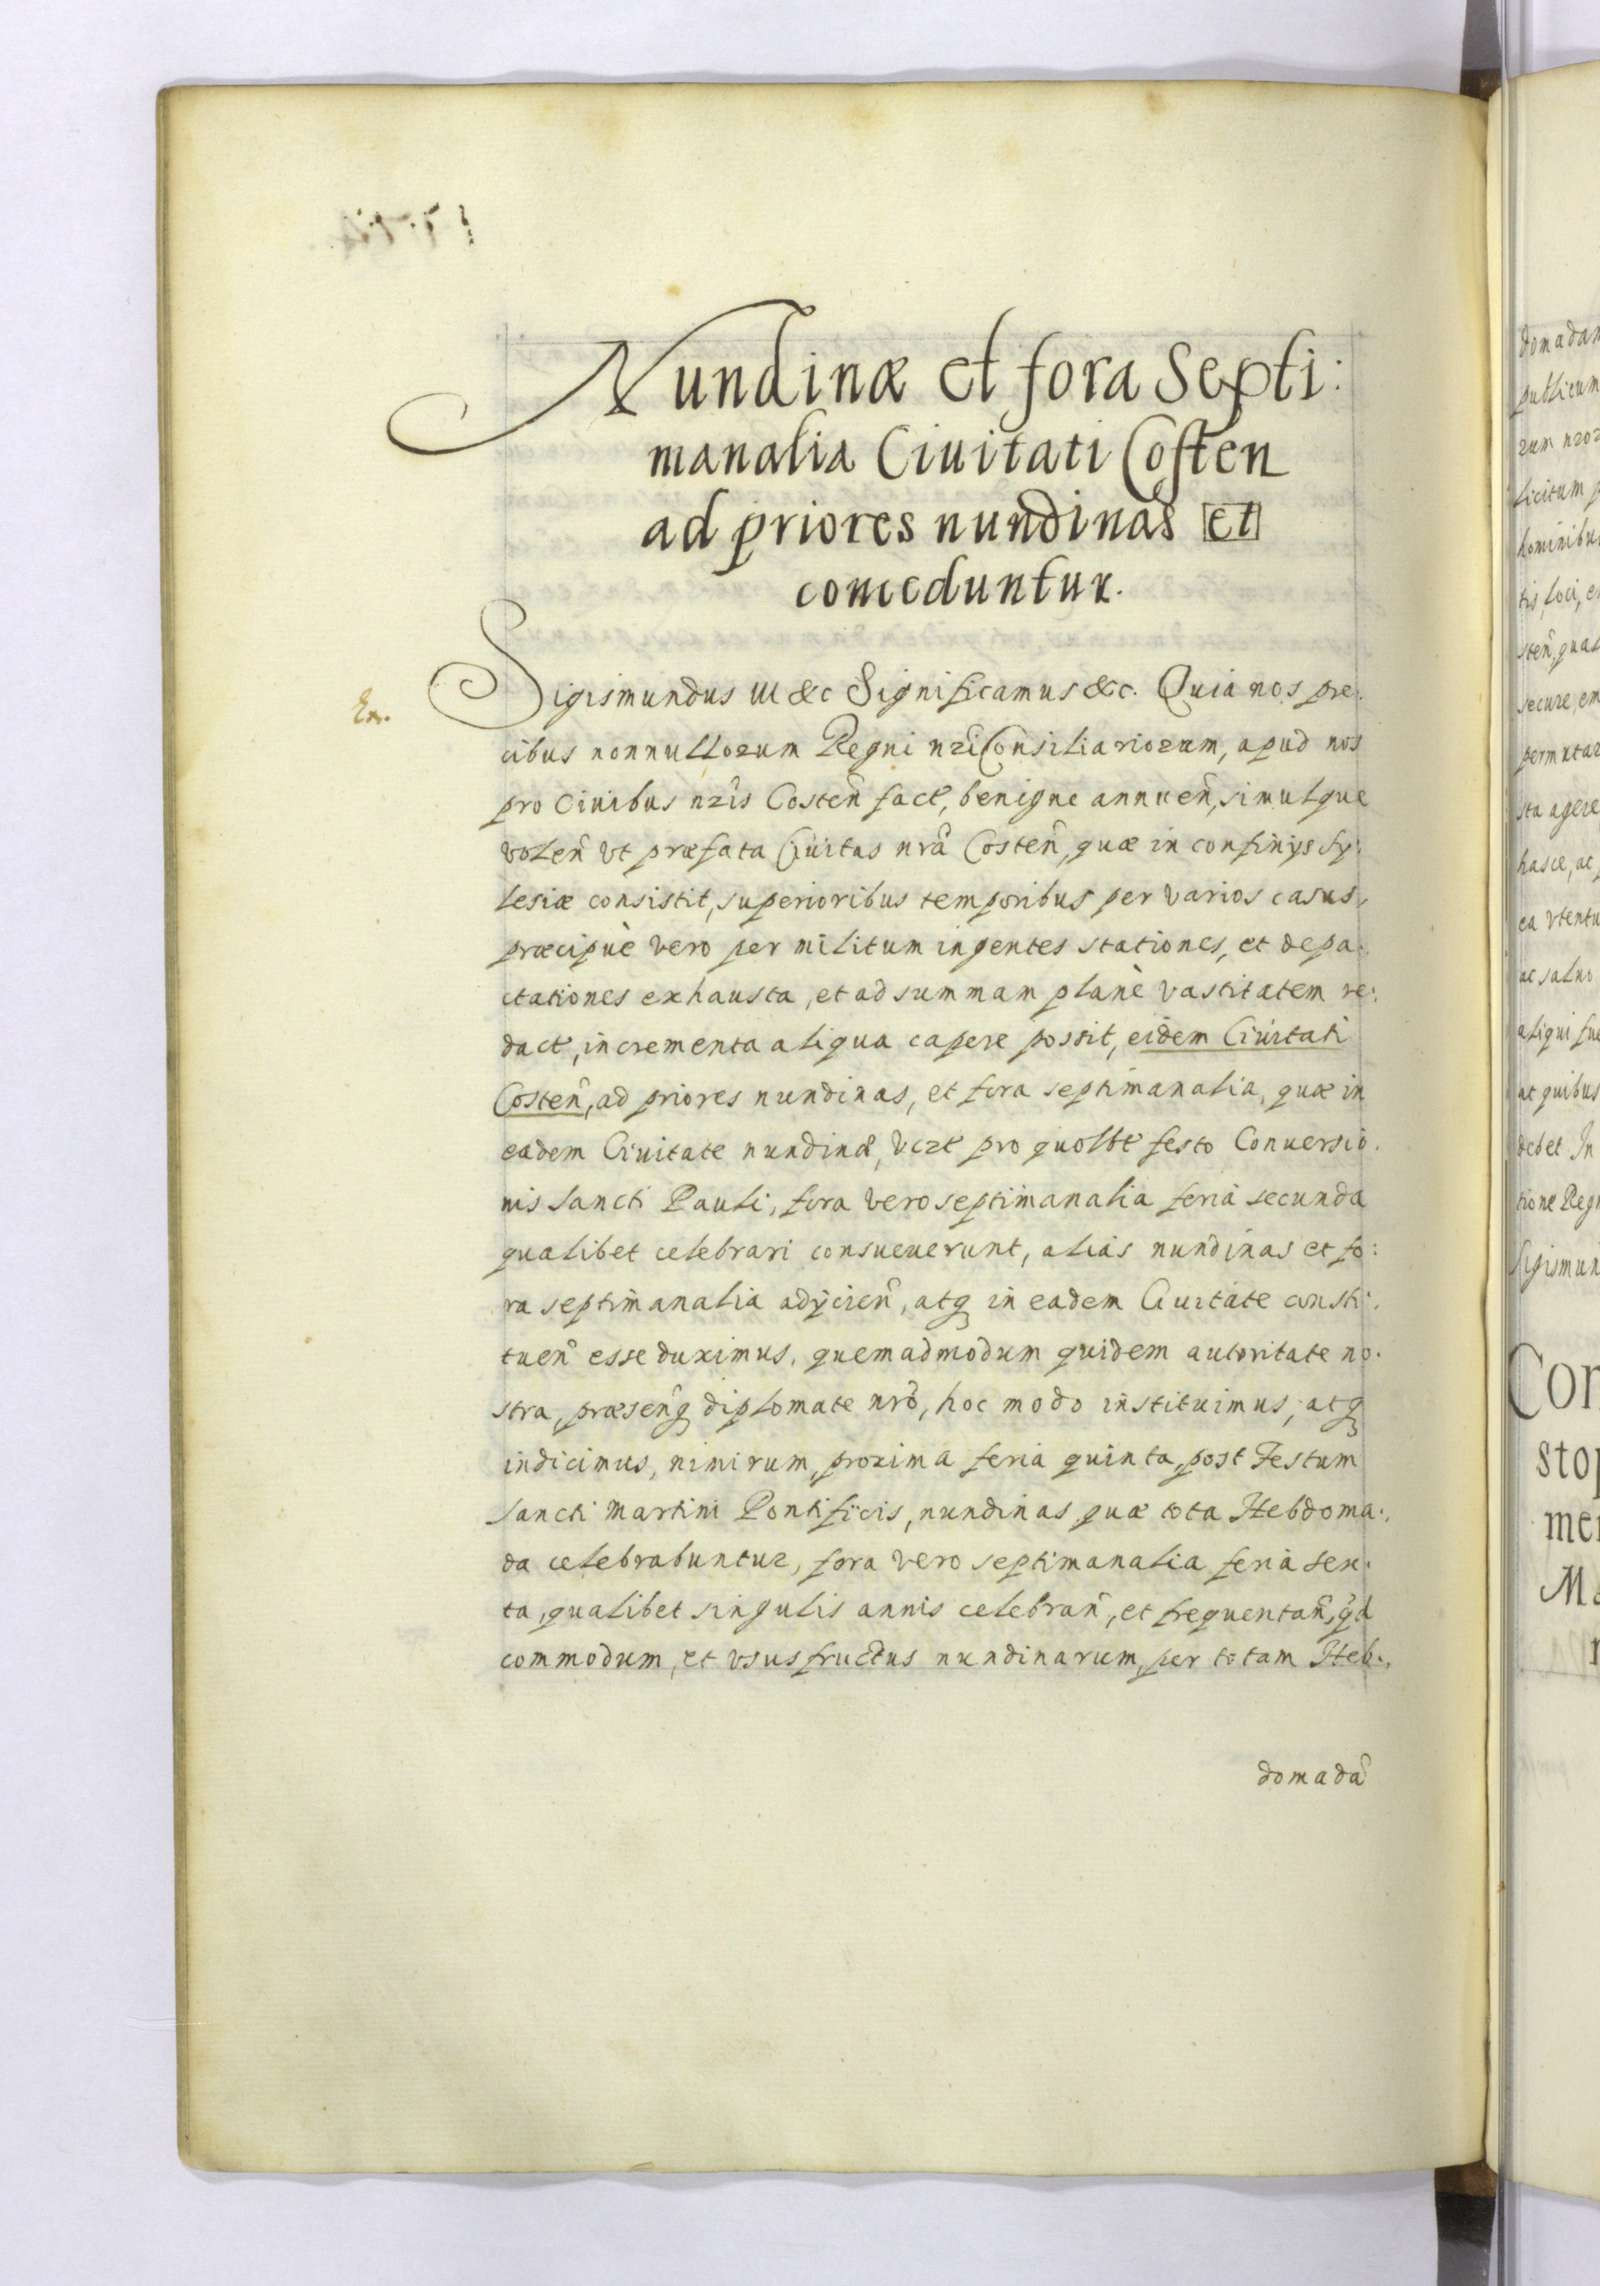 Nundinæ et fora Septi:
manalia Ciuitati Costen
ad priores nundinas et
conceduntur.
Ex.
Sigismundus III &c Significamus &c. Quia nos pre:
cibus nonnullorum Regni nrĩ Consiliariorum, apud nos
pro Ciuibus nrĩs Costeñ fact, benigne annueñ, simulque
voleñ vt præfata Ciuitas nrã Costeñ, quæ in confinijs Sy:
lesiæ consistit, superioribus temporibus per varios casus,
præcipuè vero per militum ingentes stationes, et depa:
ctationes exhausta, et ad summam planè vastitatem re:
dact, incrementa aliqua capere possit, eidem Ciuitati
Costeñ, ad priores nundinas, et fora septimanalia, quæ in
eadem Ciuitate nundinæ, vczt pro quolbt festo Conuersio:
nis Sancti Pauli, fora vero septimanalia feria secunda
qualibet celebrari consueuerunt, alias nundinas et fo:
ra septimanalia adijcieñ, atq in eadem Ciuitate consti:
tueñ esse duximus, quemadmodum quidem autoritate no:
stra, præseñq diplomate nrõ, hoc modo instituimus, atq
indicimus, nimirum, proxima feria quinta, post Festum
Sancti Martini Pontificis, nundinas, quæ tota Hebdoma:
da celebrabuntur, fora vero septimanalia feria sex:
ta, qualibet singulis annis celebrañ, et frequentañ, qd
commodum, et vsusfructus nundinarum, per totam Heb:
domadã
domadam
publicum
licitum
secure, em
permutar
sta agere
hasce, ac
ea vtentu
ac saluo
aliqui fue
at quibus
debet In
tione Reg
Sigismun
Con
stop
mer
Ma